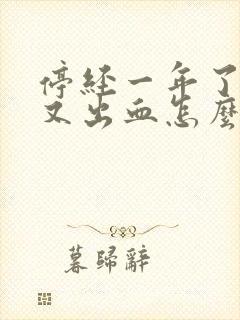 停經一年了
又出血怎麼
暮歸辭